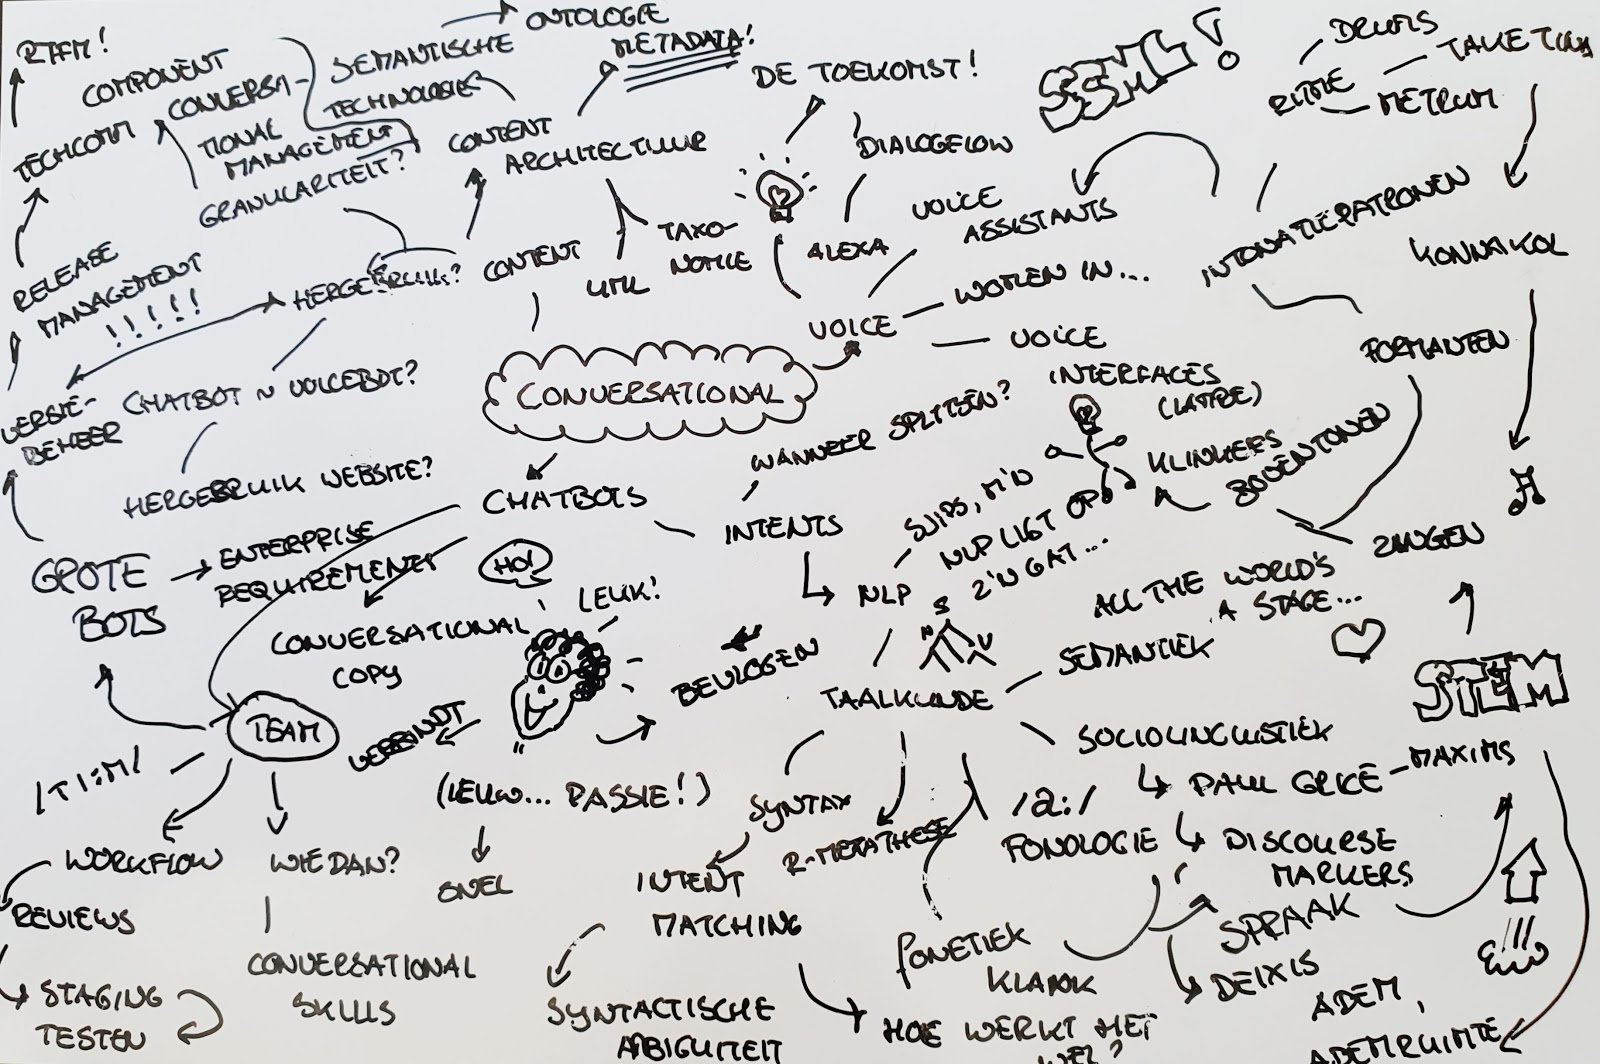 RTFM!
COMPONENT
TECHCOMM
CONVERSA-
TIONAL
MANAGEMENT
GRANULARITEIT?
SEMANTISCHE
TECHNOLOGIEËN
ONTOLOGIE
METADATA!
CONTENT
ARCHITECTUUR
DE TOEKOMST!
SSML!
DRUMS
RITME
TAKETINA
METRUM
DIALOGFLOW
VOICE
ASSISTANTS
ALEXA
TAXO-
NOMIE
UML
CONTENT
HERGEBRUIK?
RELEASE
MANAGEMENT
!!!!!
INTONATIEPATRONEN
KONNAKOL
WOMEN IN...
VOICE
VOICE
INTERFACES
(LATER)
FORMANTEN
CONVERSATIONAL
VERSIE-
BEHEER
CHATBOT ≈ VOICEBOT?
HERGEBRUIK WEBSITE?
CHATBOTS
WANNEER SPLITSEN?
INTENTS
KLINKERS
BOVENTONEN
ZINGEN
GROTE
BOTS
ENTERPRISE
REQUIREMENTS
HOI
LEUK!
NLP
SJIPS, M'N
NLP LIGT OP
Z'N GAT...
ALL THE WORLD'S
A STAGE...
CONVERSATIONAL
COPY
BEVLOGEN
S
N
V
TAALKUNDE
SEMANTIEK
STEM
TEAM
VERBINDT
(LEUW... PASSIE!)
SNEL
SOCIOLINGUISTIEK
PAUL GRICE - MAXIMS
/TI:M/
SYNTAX
R-METATHESE
/a:/
FONOLOGIE
DISCOURSE
MARKERS
WORKFLOW
WIE DAN?
INTENT
MATCHING
REVIEWS
SPRAAK
FONETIEK
KLANK
DEIXIS
CONVERSATIONAL
SKILLS
STAGING
TESTEN
SYNTACTISCHE
AMBIGUITEIT
HOE WERKT HET
WEL?
ADEM,
ADEMRUIMTE